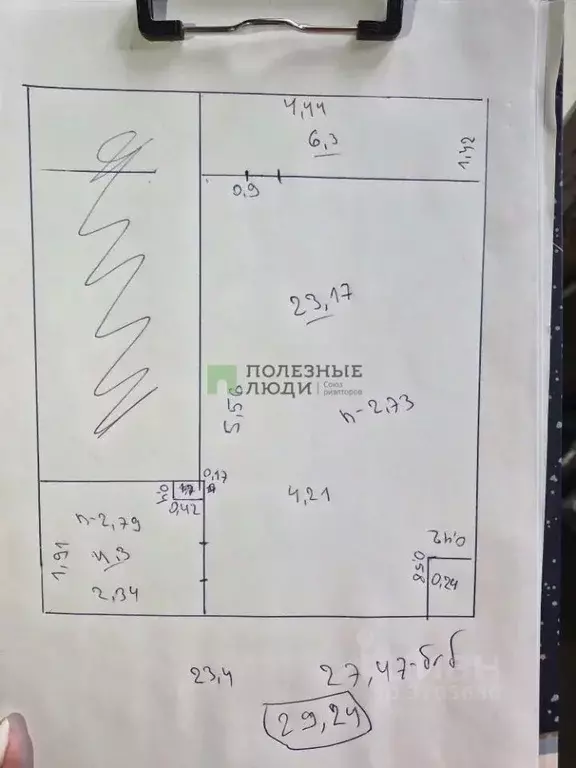 4,44
6,3
1,42
0,9
23,17
ПОЛЕЗНЫЕ
ЛЮДИ
Союз
риэлторов
5,56
h-2,73
0,17
0,42
4,21
h-2,79
1,91
4,3
2,34
0,42
0,58
0,24
23,4
27,47-б/б
29,24